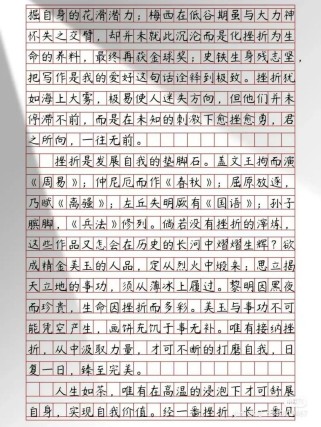 掘自身的花滑潜力；梅西在低谷期虽与大力神
杯失之交臂，却并未就此沉沦而是化挫折为生
命的养料，最终再获金球奖；史铁生身残志坚，
把写作是我的爱好这句话诠释到极致。挫折犹
如海上大雾，极易使人迷失方向，但他们并未
停滞不前，而是在未知的刺激下愈挫愈勇，君
之所向，一往无前。
挫折是发展自我的垫脚石。盖文王拘而演
《周易》；仲尼厄而作《春秋》；屈原放逐，
乃赋《离骚》；左丘失明厥有《国语》；孙子
膑脚，《兵法》修列。倘若没有挫折的淬炼，
这些作品又怎会在历史的长河中熠熠生辉？欲
成精金美玉的人品，定从烈火中煅来；思立揭
天立地的事功，须从薄冰上履过。黎明因黑夜
而珍贵，生命因挫折而多彩。美玉与事功不可
能凭空产生，画饼充饥于事无补。唯有接纳挫
折，从中汲取力量，才可不断的打磨自我，日
复一日，臻至完美。
人生如茶，唯有在高温的浸泡下才可舒展
自身，实现自我价值。经一番挫折，长一番见